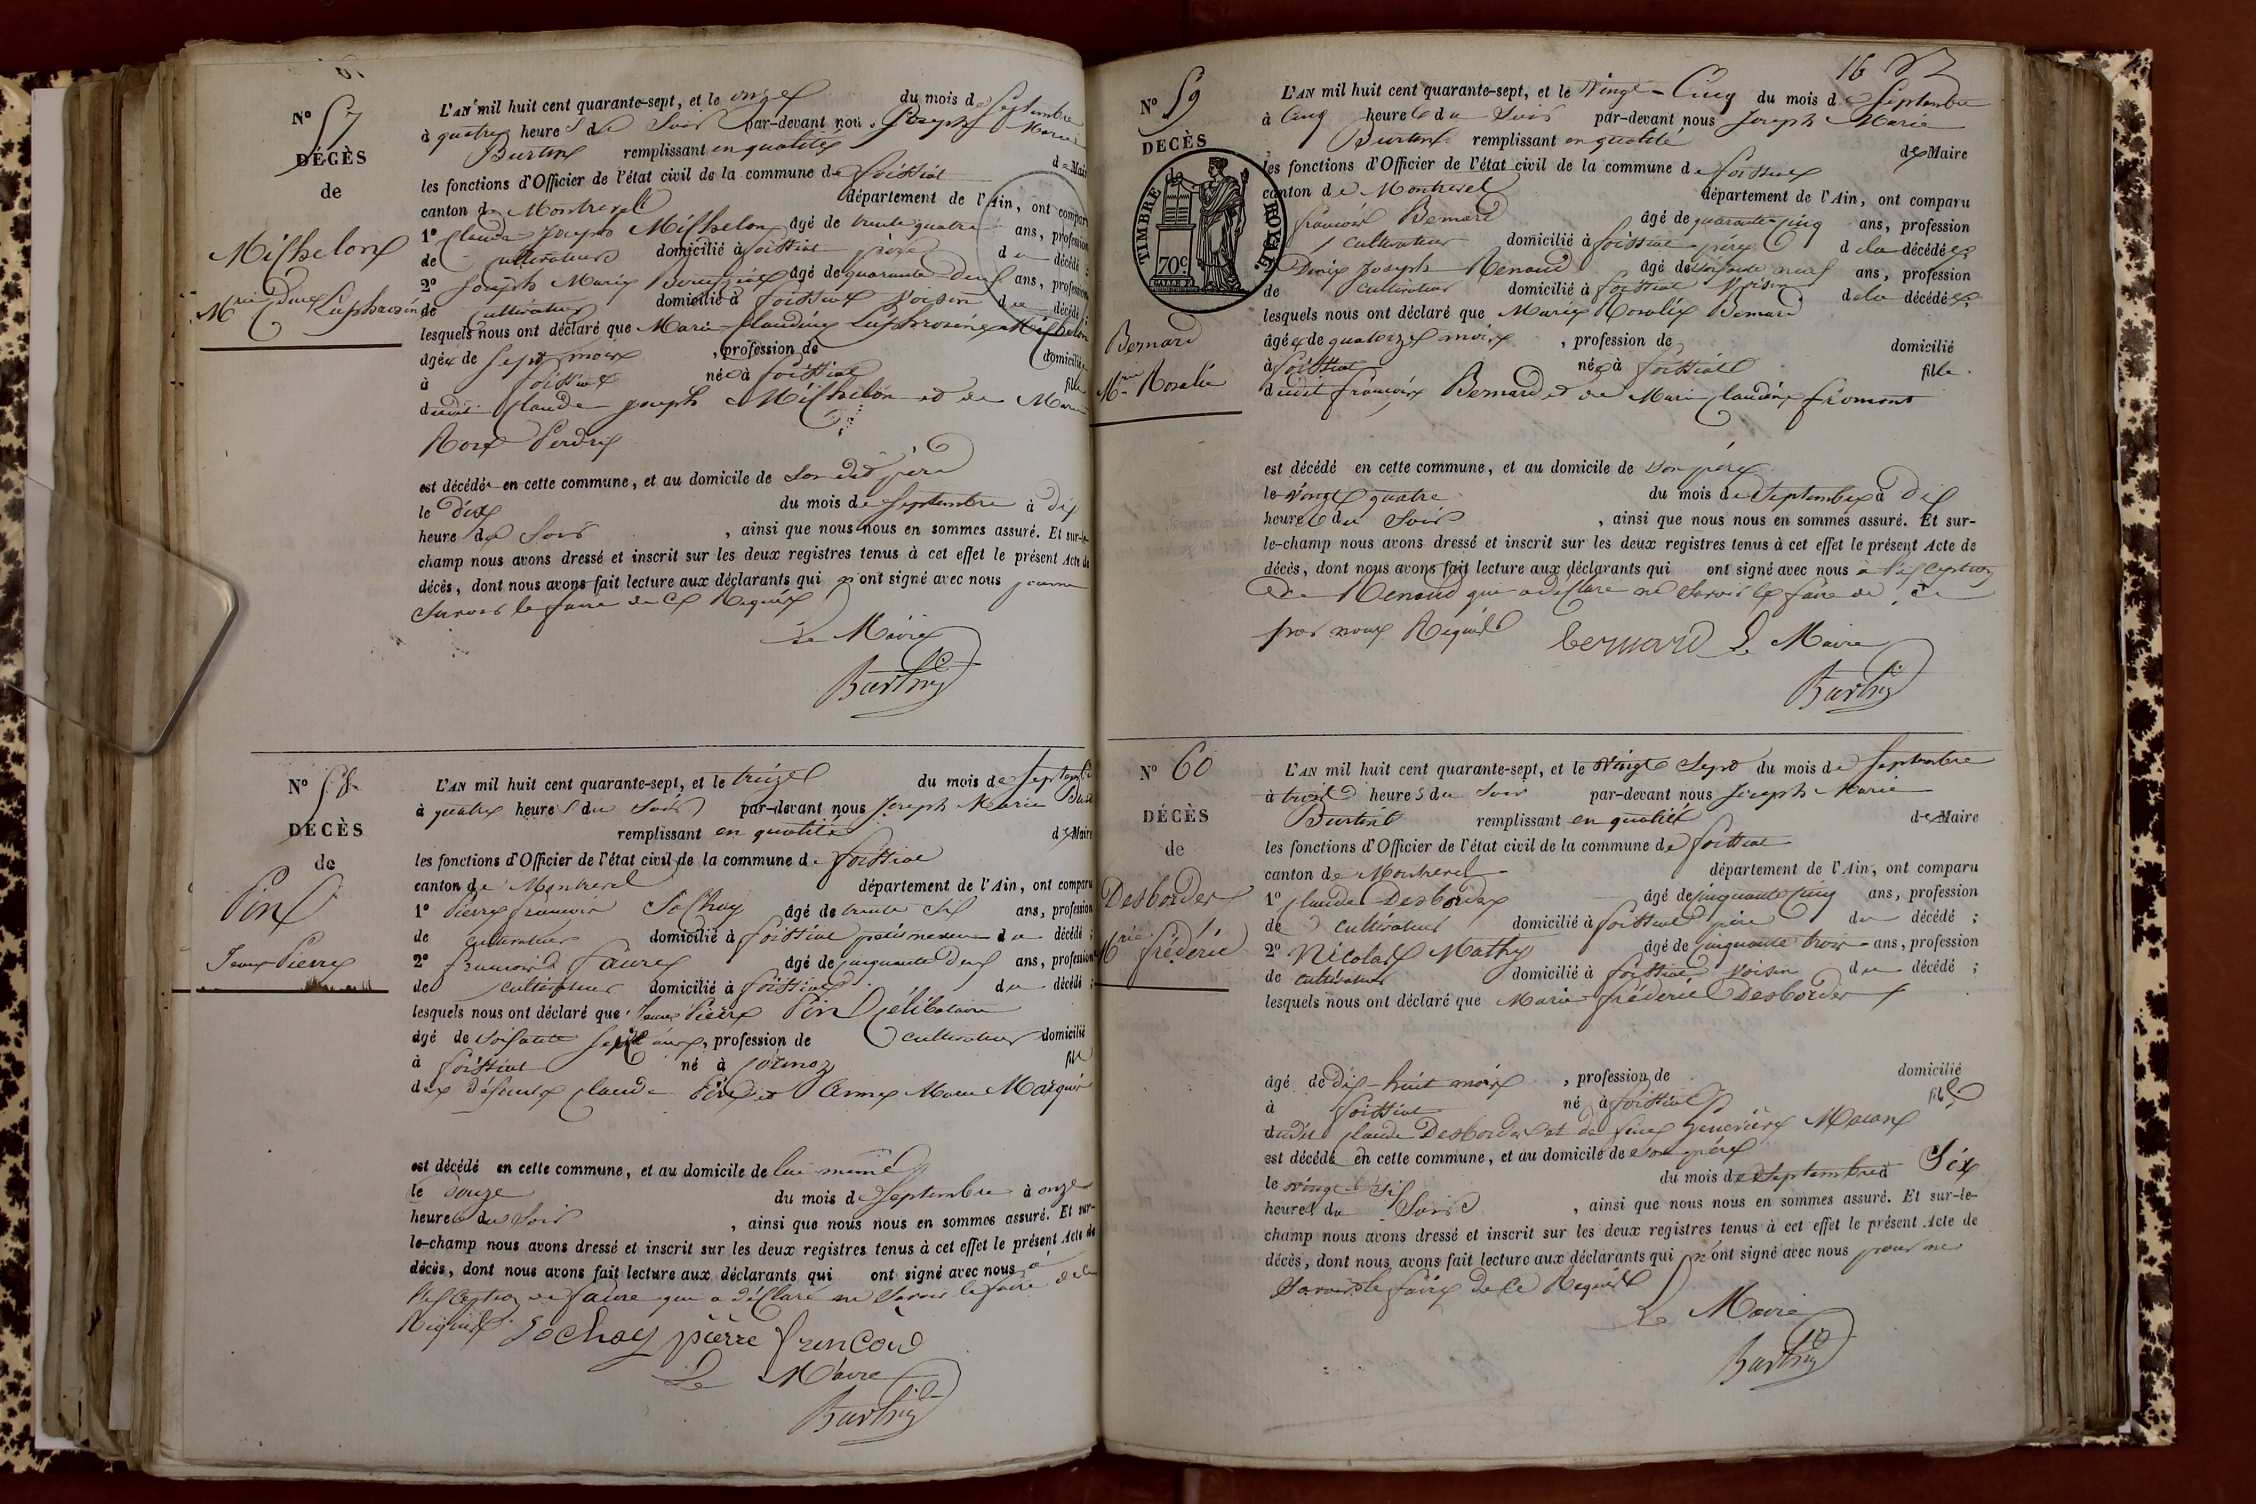 N° 57
DÉCÈS
de
Michelon
Mrie Dine Euphrosine
L'AN mil huit cent quarante-sept, et le onze du mois de Septembre
à quatre heures du Soir par-devant nous Joseph Marie
Burtin remplissant en qualité de Maire
les fonctions d'Officier de l'état civil de la commune de foissiat
canton de Montrevel département de l'Ain, ont comparu
1° Claude Joseph Michelon âgé de trente quatre ans, profession
de Cultivateur domicilié à foissiat père du décédé ;
2° Joseph Marie âgé de quarante deux ans, profession
de Cultivateur domicilié à foissiat Voisin du décédé ;
lesquels nous ont déclaré que Marie Claudine Euphrosine Michelon
âgée de Sept mois , profession de domicilié
à foissiat née à foissiat fille
dudit Claude Joseph Michelon et de Marie
Rose Perdrix
est décédée en cette commune, et au domicile de Son dit père
le dix du mois de Septembre à dix
heures du Soir , ainsi que nous nous en sommes assuré. Et sur-le-
champ nous avons dressé et inscrit sur les deux registres tenus à cet effet le présent Acte de
décès, dont nous avons fait lecture aux déclarants qui n'ont signé avec nous pour ne
Savoir le faire de ce Requis
Le Maire
Burtin
N° 58
DÉCÈS
de
Pin
Jean Pierre
L'AN mil huit cent quarante-sept, et le treize du mois de Septembre
à quatre heures du Soir par-devant nous Joseph Marie Burtin
remplissant en qualité de Maire
les fonctions d'Officier de l'état civil de la commune de foissiat
canton de Montrevel département de l'Ain, ont comparu
1° Pierre françois Sochay âgé de trente Six ans, profession
de cultivateur domicilié à foissiat petit neveu du décédé ;
2° françois faure âgé de cinquante deux ans, profession
de cultivateur domicilié à foissiat du décédé ;
lesquels nous ont déclaré que Jean Pierre Pin Célibataire
âgé de Soixante Sept ans, profession de Cultivateur domicilié
à foissiat né à Cormoz fils
des défunts Claude Pin et Anne Marie Marquis
est décédé en cette commune, et au domicile de lui même
le douze du mois de Septembre à onze
heures du Soir , ainsi que nous nous en sommes assuré. Et sur-
le-champ nous avons dressé et inscrit sur les deux registres tenus à cet effet le présent Acte de
décès, dont nous avons fait lecture aux déclarants qui ont signé avec nous à
l'exception de faure qui a déclaré ne Savoir le faire de ce
Requis Sochay pierre francois
Le Maire
Burtin
16
N° 59
DÉCÈS
de
TIMBRE ROYAL
70c
Bernard
Mrie Rosalie
L'AN mil huit cent quarante-sept, et le Vingt-Cinq du mois de Septembre
à Cinq heures du Soir par-devant nous Joseph Marie
Burtin remplissant en qualité de Maire
les fonctions d'Officier de l'état civil de la commune de foissiat
canton de Montrevel département de l'Ain, ont comparu
françois Bernard âgé de quarante cinq ans, profession
cultivateur domicilié à foissiat père de la décédée
Denis Joseph Renaud âgé de soixante neuf ans, profession
de cultivateur domicilié à foissiat Voisin de la décédée
lesquels nous ont déclaré que Marie Rosalie Bernard
âgée de quatorze mois , profession de domicilié
à foissiat née à foissiat fille
dudit françois Bernard et de Marie Claudine fromont
est décédé en cette commune, et au domicile de Son père
le Vingt quatre du mois de Septembre à dix
heures du Soir , ainsi que nous nous en sommes assuré. Et sur-
le-champ nous avons dressé et inscrit sur les deux registres tenus à cet effet le présent Acte de
décès, dont nous avons fait lecture aux déclarants qui ont signé avec nous à l'exception
de Renaud qui a déclaré ne Savoir le faire de ce
par nous Requis bernard Le Maire
Burtin
N° 60
DÉCÈS
de
Desbordes
Mrie frédéric
L'AN mil huit cent quarante-sept, et le Vingt Sept du mois de Septembre
à trois heures du Soir par-devant nous Joseph Marie
Burtin remplissant en qualité de Maire
les fonctions d'Officier de l'état civil de la commune de foissiat
canton de Montrevel département de l'Ain, ont comparu
1° Claude Desbordes âgé de cinquante cinq ans, profession
de cultivateur domicilié à foissiat père du décédé ;
2° Nicolas Mathy âgé de cinquante trois ans, profession
de cultivateur domicilié à foissiat Voisin du décédé ;
lesquels nous ont déclaré que Marie frédéric Desbordes
âgé de dix-huit mois , profession de domicilié
à foissiat né à foissiat fils
dudit Claude Desbordes et de Geneviève
est décédé en cette commune, et au domicile de Son père
le Vingt Six du mois de Septembre à Six
heures du Soir , ainsi que nous nous en sommes assuré. Et sur-le-
champ nous avons dressé et inscrit sur les deux registres tenus à cet effet le présent Acte de
décès, dont nous avons fait lecture aux déclarants qui n'ont signé avec nous pour ne
Savoir le faire de ce Requis
Le Maire
Burtin